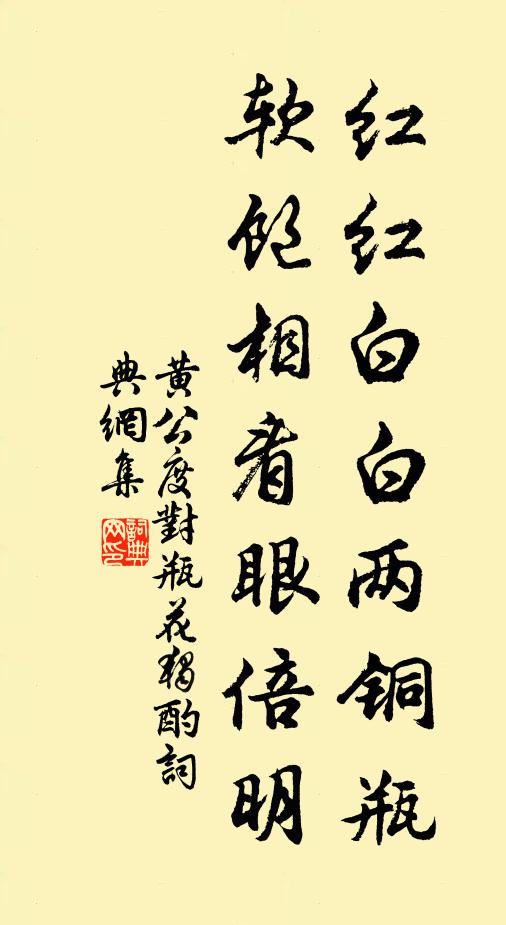 红红白白两铜瓶
软饱相看眼倍明
黄公度對瓶花獨酌詞
典網集
詞典
网印